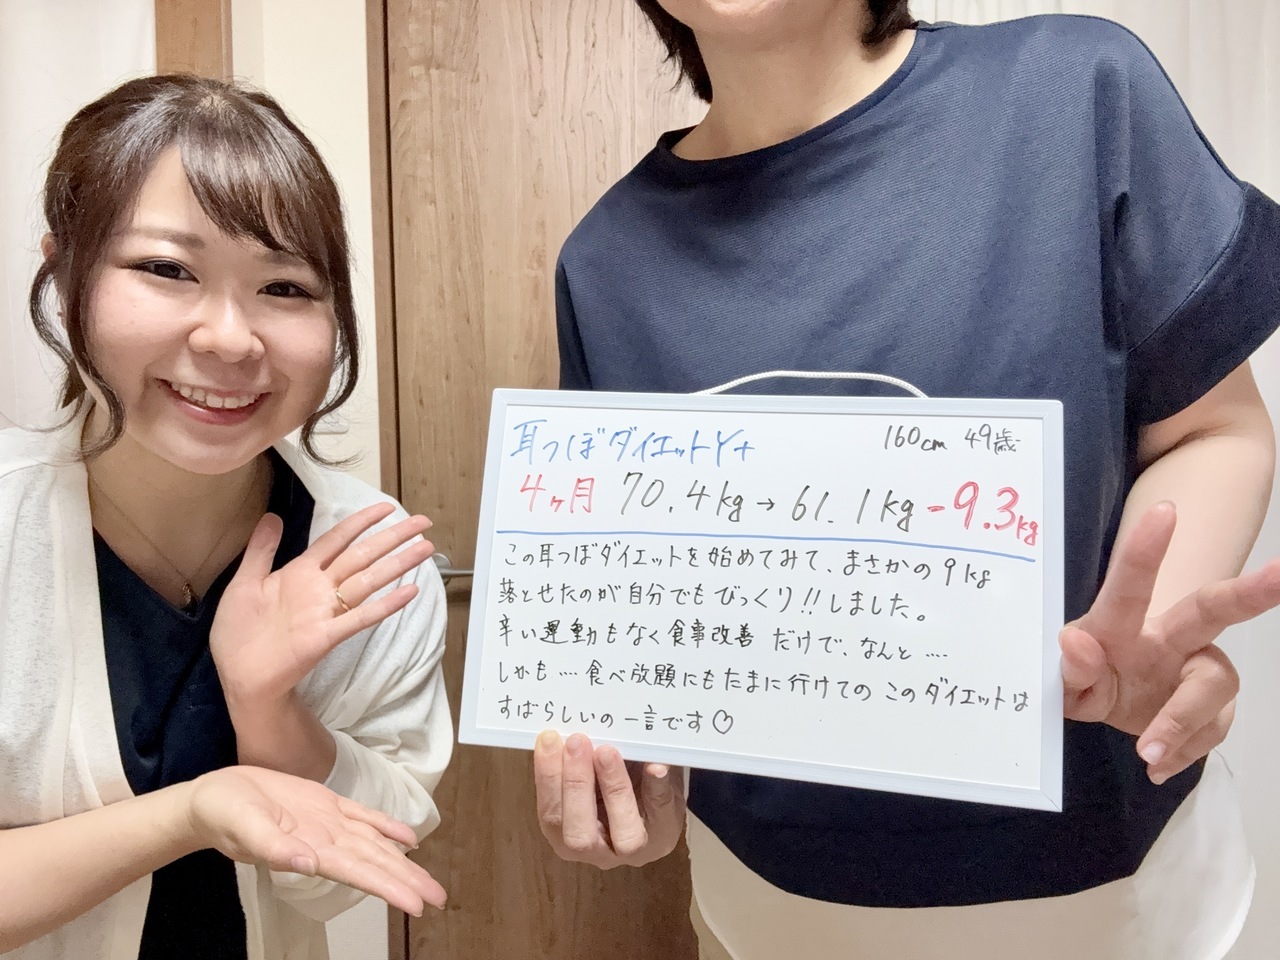 耳つぼダイエットY+
160cm 49歳
4ヶ月 70.4kg→61.1kg -9.3kg
この耳つぼダイエットを始めてみて、まさかの9kg
落とせたのが自分でもびっくり!!しました。
辛い運動もなく食事改善だけで、なんと….
しかも….食べ放題にもたまに行けてのこのダイエットは
すばらしいの一言です♡